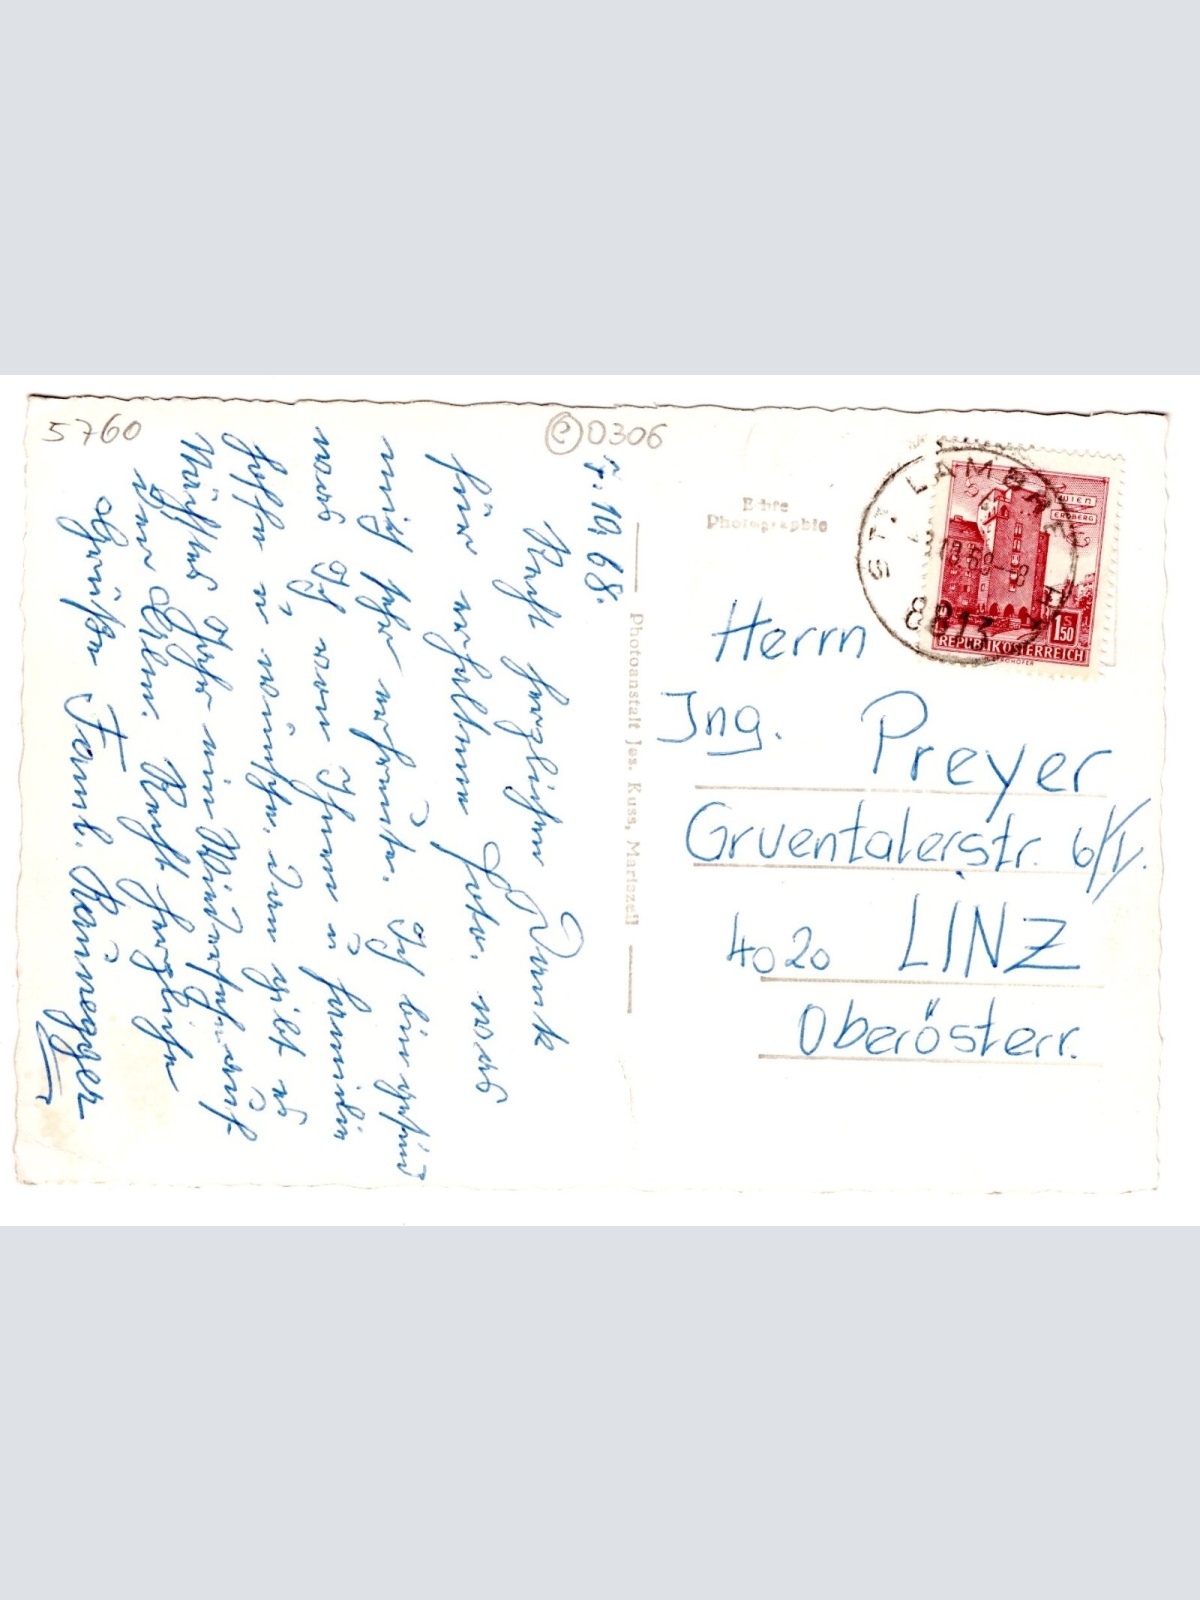 5760
D306
7.10.68.
Recht herzlichen Dank
für erhaltene Foto, was
mich sehr erfreute. Ich bin gesund
was Ich von Ihnen u Familie
hoffe u wünsche, dan gibt es
Nächstes Jahr ein Wiedersehen auf
der Alm. Recht herzliche
Grüße Faml.
Echte
Photographie
Photoanstalt Jos. Kuss, Mariazell
ST. LAMBRECHT
8813
WIEN
ERDBERG
S
1.50
REPUBLIK ÖSTERREICH
Herrn
Ing. Preyer
Gruentalerstr. 6/I/.
4020 LINZ
Oberösterr.